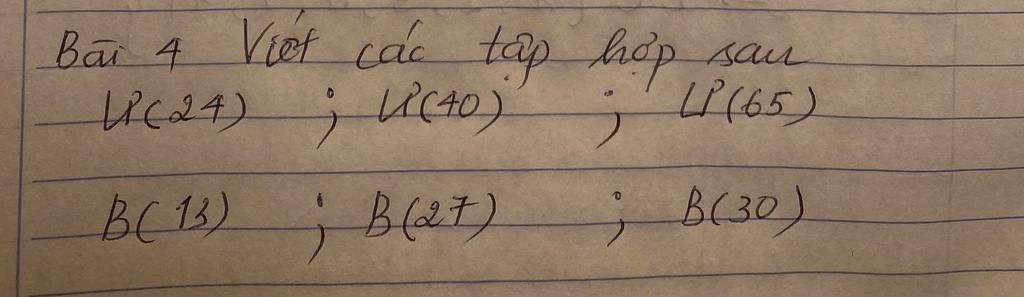 Bài 4 Viết các tập hợp sau
Ư(24) ; Ư(40) ; Ư(65)
B(13) ; B(27) ; B(30)